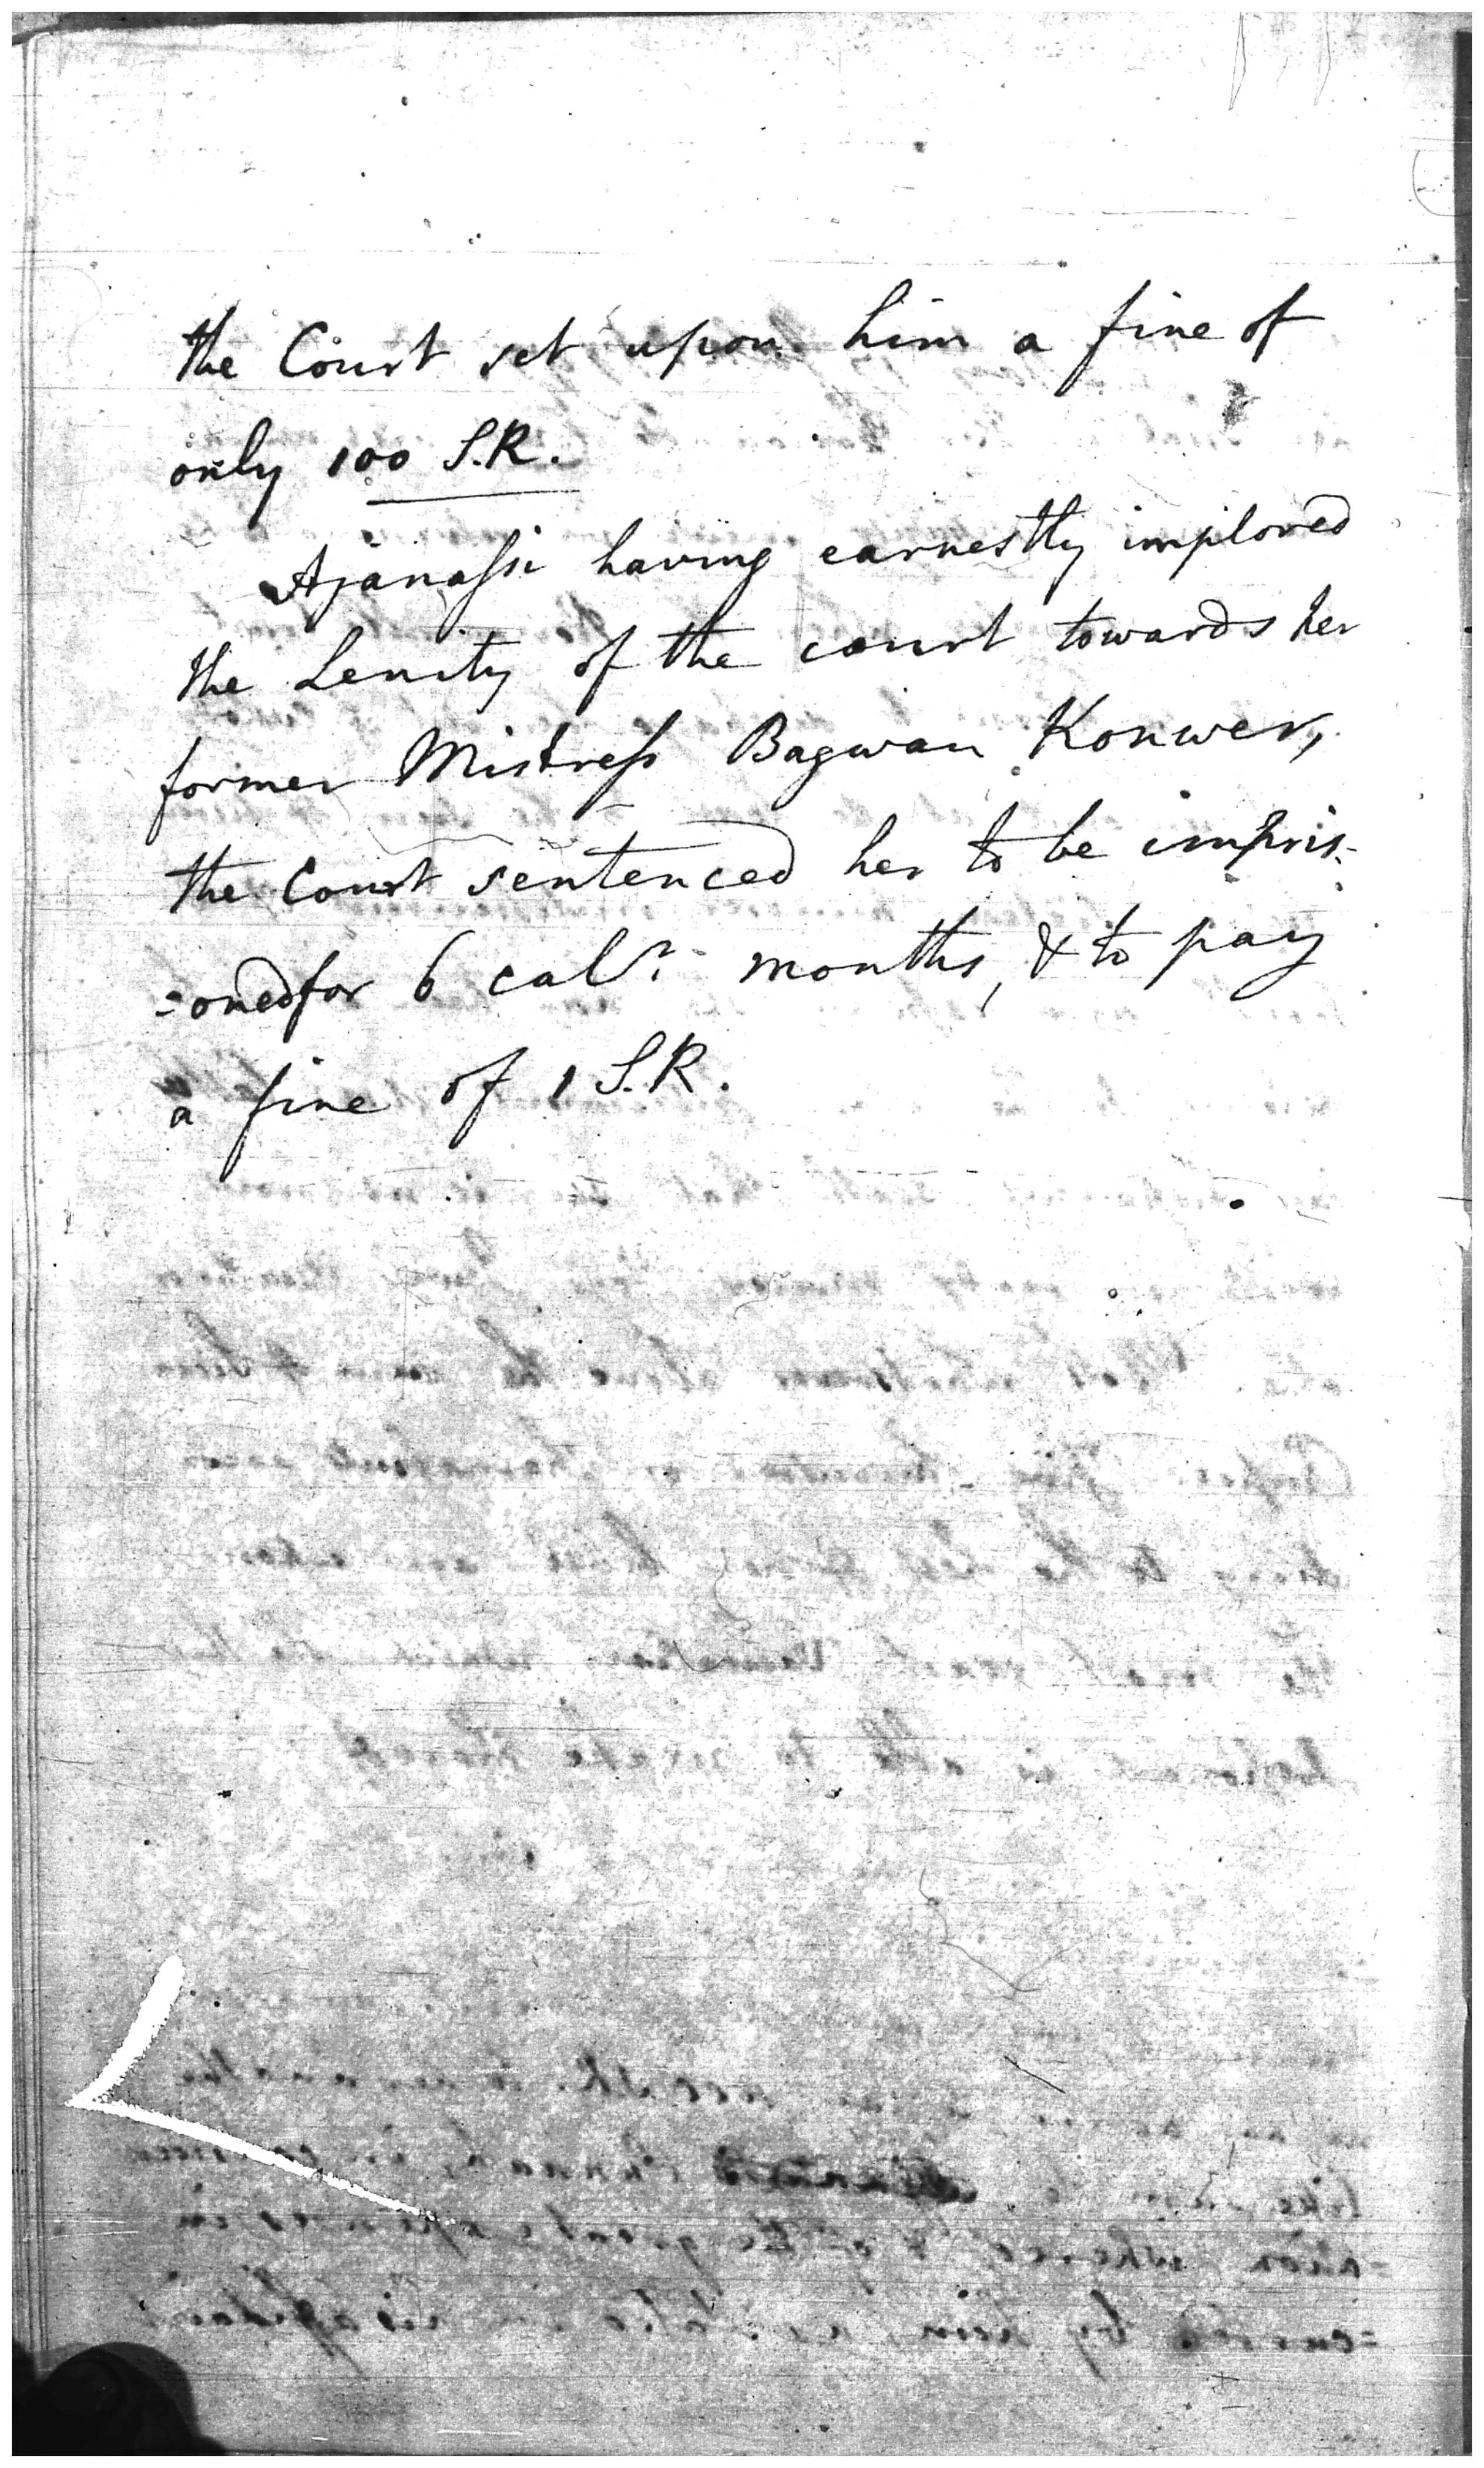 the Court set upon him a fine of
only 100 S.R.
Ajanassi having earnestly implored
the Lenity of the court towards her
former Mistress Bagwan Konwer,
the Court sentenced her to be impris-
=oned for 6 calr. months, & to pay
a fine of 1 S.R.